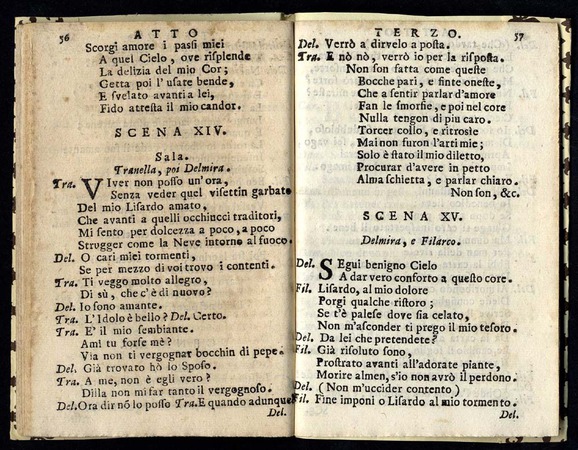 56 ATTO
Scorgi amore i passi miei
A quel Cielo, ove risplende
La delizia del mio Cor;
Getta poi l'usate bende,
E svelato avanti a lei,
Fido attesta il mio candor.
SCENA XIV.
Sala.
Tranella, poi Delmira.
Tra. VIver non posso un'ora,
Senza veder quel visettin garbato
Del mio Lisardo amato,
Che avanti a quelli occhiucci traditori,
Mi sento per dolcezza a poco, a poco
Strugger come la Neve intorno al fuoco.
Del. O cari miei tormenti,
Se per mezzo di voi trovo i contenti.
Tra. Ti veggo molto allegro,
Di sù, che c'è di nuovo?
Del. Io sono amante.
Tra. L'Idolo è bello? Del. Certo.
Tra. E' il mio sembiante.
Ami tu forse mè?
Via non ti vergognar bocchin di pepe.
Del. Già trovato hò lo Sposo.
Tra. A me, non è egli vero?
Dilla non mi far tanto il vergognoso.
Del. Ora dir nō lo posso Tra. E quando adunque
Del.
TERZO. 57
Del. Verrò a dirvelo a posta.
Tra. E nò nò, verrò io per la risposta.
Non son fatta come queste
Bocche pari, e finte oneste,
Che a sentir parlar d'amore
Fan le smorfie, e poi nel core
Nulla tengon di piu caro.
Torcer collo, e ritrosìe
Mai non furon l'arti mie;
Solo è stato il mio diletto,
Procurar d'avere in petto
Alma schietta, e parlar chiaro.
Non son, &c.
SCENA XV.
Delmira, e Filarco.
Del. SEgui benigno Cielo
A dar vero conforto a questo core.
Fil. Lisardo, al mio dolore
Porgi qualche ristoro;
Se t'è palese dove sia celato,
Non m'asconder ti prego il mio tesoro.
Del. Da lei che pretendete?
Fil. Già risoluto sono,
Prostrato avanti all'adorate piante,
Morire almen, s'io non avrò il perdono.
Del. (Non m'uccider contento)
Fil. Fine imponi o Lisardo al mio tormento.
Del.